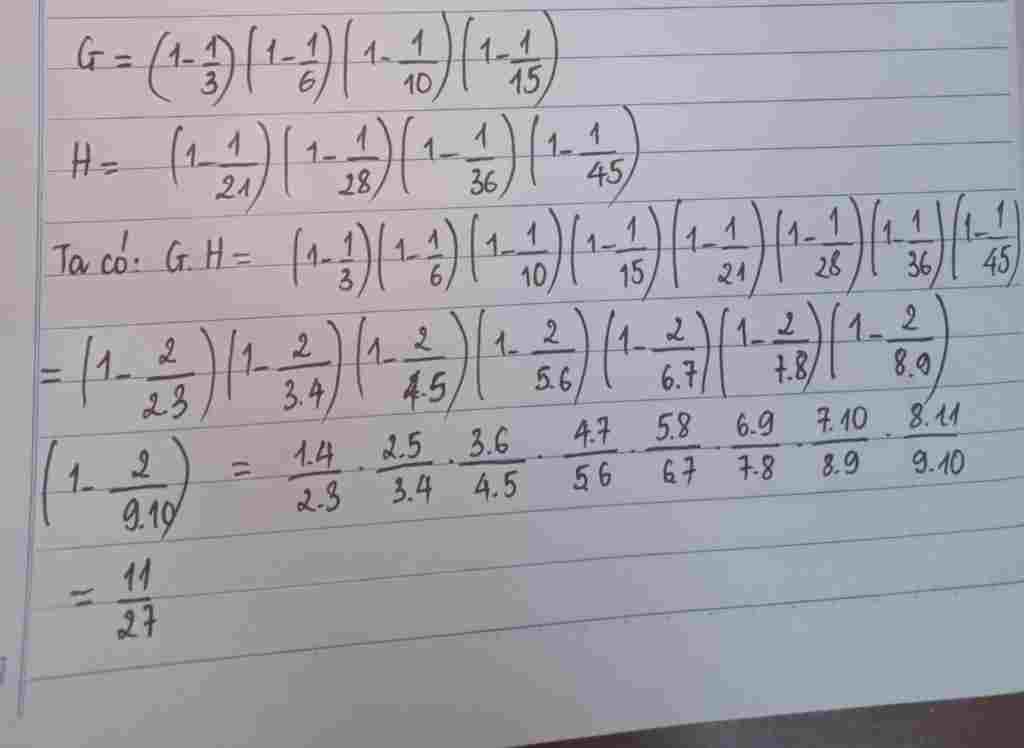 G = (1 - 1/3) (1 - 1/6) (1 - 1/10) (1 - 1/15)
H = (1 - 1/21) (1 - 1/28) (1 - 1/36) (1 - 1/45)
Ta có: G.H = (1 - 1/3) (1 - 1/6) (1 - 1/10) (1 - 1/15) (1 - 1/21) (1 - 1/28) (1 - 1/36) (1 - 1/45)
= (1 - 2/2.3) (1 - 2/3.4) (1 - 2/4.5) (1 - 2/5.6) (1 - 2/6.7) (1 - 2/7.8) (1 - 2/8.9)
(1 - 2/9.10) = 1.4/2.3 . 2.5/3.4 . 3.6/4.5 . 4.7/56 . 5.8/6.7 . 6.9/7.8 . 7.10/8.9 . 8.11/9.10
= 11/27